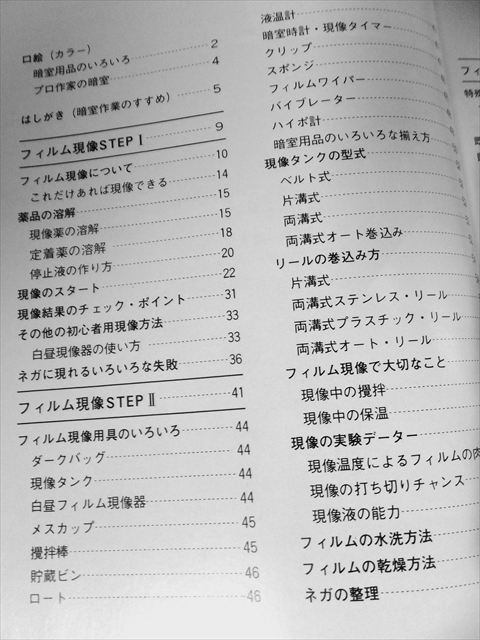 口絵（カラー） 2
暗室用品のいろいろ 4
プロ作家の暗室
はしがき（暗室作業のすすめ） 5
フィルム現像STEP I 9
フィルム現像について 10
これだけあれば現像できる 14
薬品の溶解 15
現像薬の溶解 15
定着薬の溶解 18
停止液の作り方 20
現像のスタート 22
現像結果のチェック・ポイント 31
その他の初心者用現像方法 33
白昼現像器の使い方 33
ネガに現れるいろいろな失敗 36
フィルム現像STEP II 41
フィルム現像用具のいろいろ 44
ダークバッグ 44
現像タンク 44
白昼フィルム現像器 44
メスカップ 45
攪拌棒 45
貯蔵ビン 46
ロート 46
液温計
暗室時計・現像タイマー
クリップ
スポンジ
フィルムワイパー
バイブレーター
ハイポ計
暗室用品のいろいろな揃え方
現像タンクの型式
ベルト式
片溝式
両溝式
両溝式オート巻込み
リールの巻込み方
片溝式
両溝式ステンレス・リール
両溝式プラスチック・リール
両溝式オート・リール
フィルム現像で大切なこと
現像中の攪拌
現像中の保温
現像の実験データー
現像温度によるフィルムの肉
現像の打ち切りチャンス
現像液の能力
フィルムの水洗方法
フィルムの乾燥方法
ネガの整理
フィ
特殊